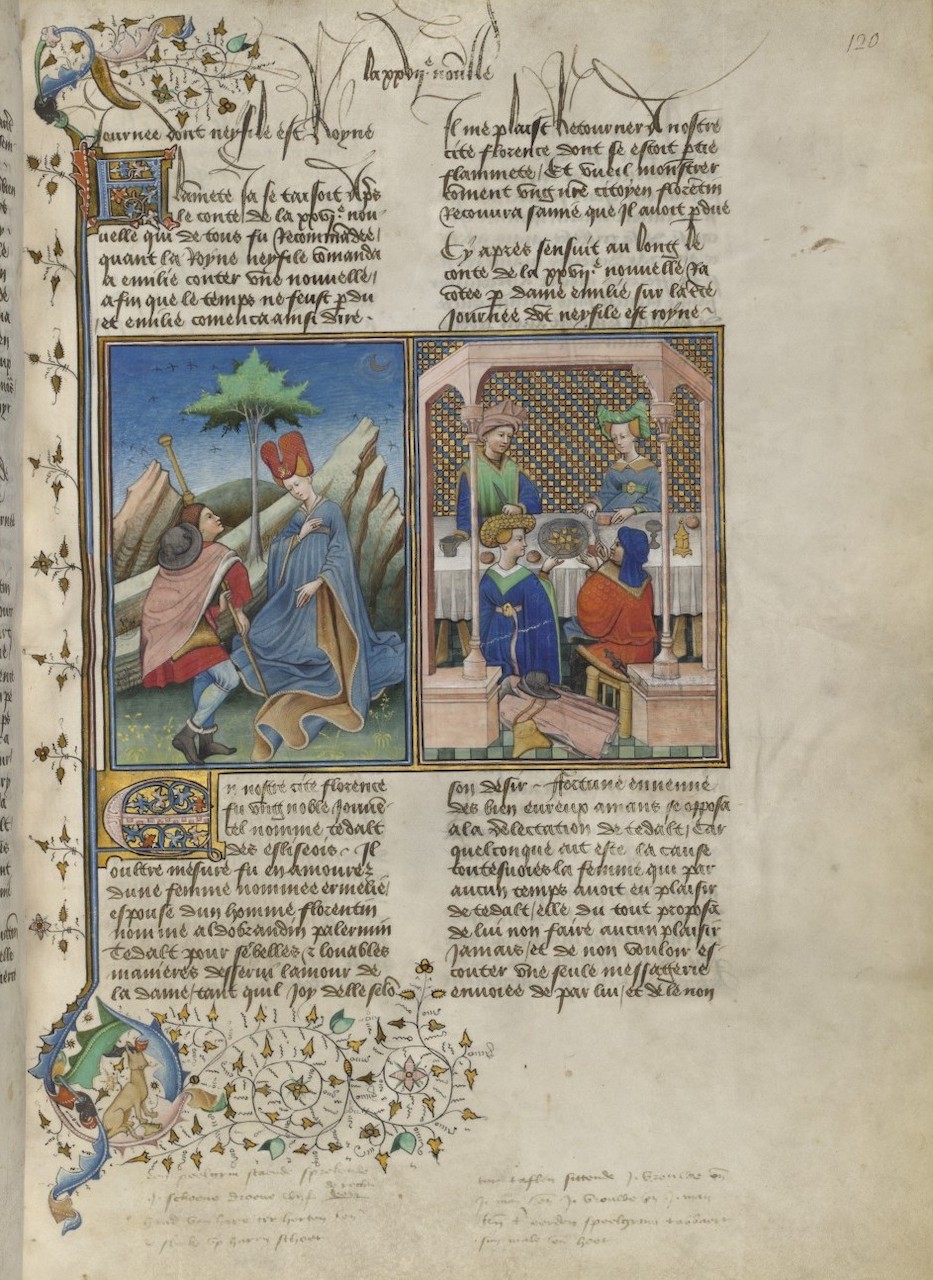 120
la xxvij.e nouvelle
Journee dont neyfile est Royne
Flamete Ja se taisoit Aps
le conte de la xxvj.e nou
uelle qui de tous fu Recommandee /
quant la Royne neyfile cōmanda
a emilie conter vne nouuelle /
afin que le temps ne feust pdu
/ et emilie cōmenca ainsi dire.
Il me plaist Retourner A nostre
cite florence dont se estoit ptie
flammete / Et vueil monstrer
coment vng ñre citoyen florentin
Recouura samie que Il auoit pdue
Cy apres sensuit au long le
conte de la xxvij.e nouuelle Ra
cōtee p dame emilie sur la
Journee dōt neyfile est royne
En nostre cite florence
fu vng noble Jouuē
cel nomme tedalt
des esliseois. Il
oultre mesure fu en amourez
dune femme nommee ermelie /
espouse dun homme florentin
nomme aldobrandin palermin
Tedalt pour se belles & louables
manieres desserui lamour de
la dame / tant quil Joy delle selō
son desir. ffortune ennemie
des bien eureux amans se opposa
a la delectation de tedalt / Car
quelconque ait este la cause
toutesuoies la femme qui par
aucun temps auoit eu plaisir
de tedalt / elle du tout proposa
de lui non faire aucun plaisir
Jamais / et de non vouloir es
couter vne seule messagerie
enuoiee de par lui / et de le non
peelgrym staende sprekende
schoene vrouwe
taflen sittende
peelgrym tabbaert